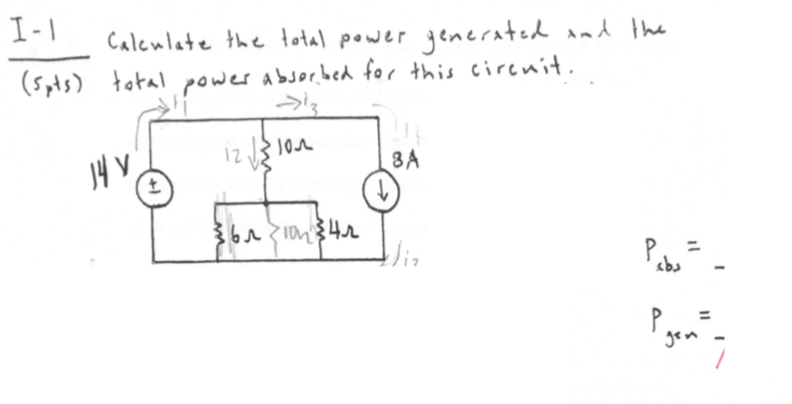 I-1 Calculate the total power generated and the
(5pts) total power absorbed for this circuit.
i1 i3
i2 10Ω
14 V
8A
±
6Ω 10Ω 4Ω
P abs =
P gen =